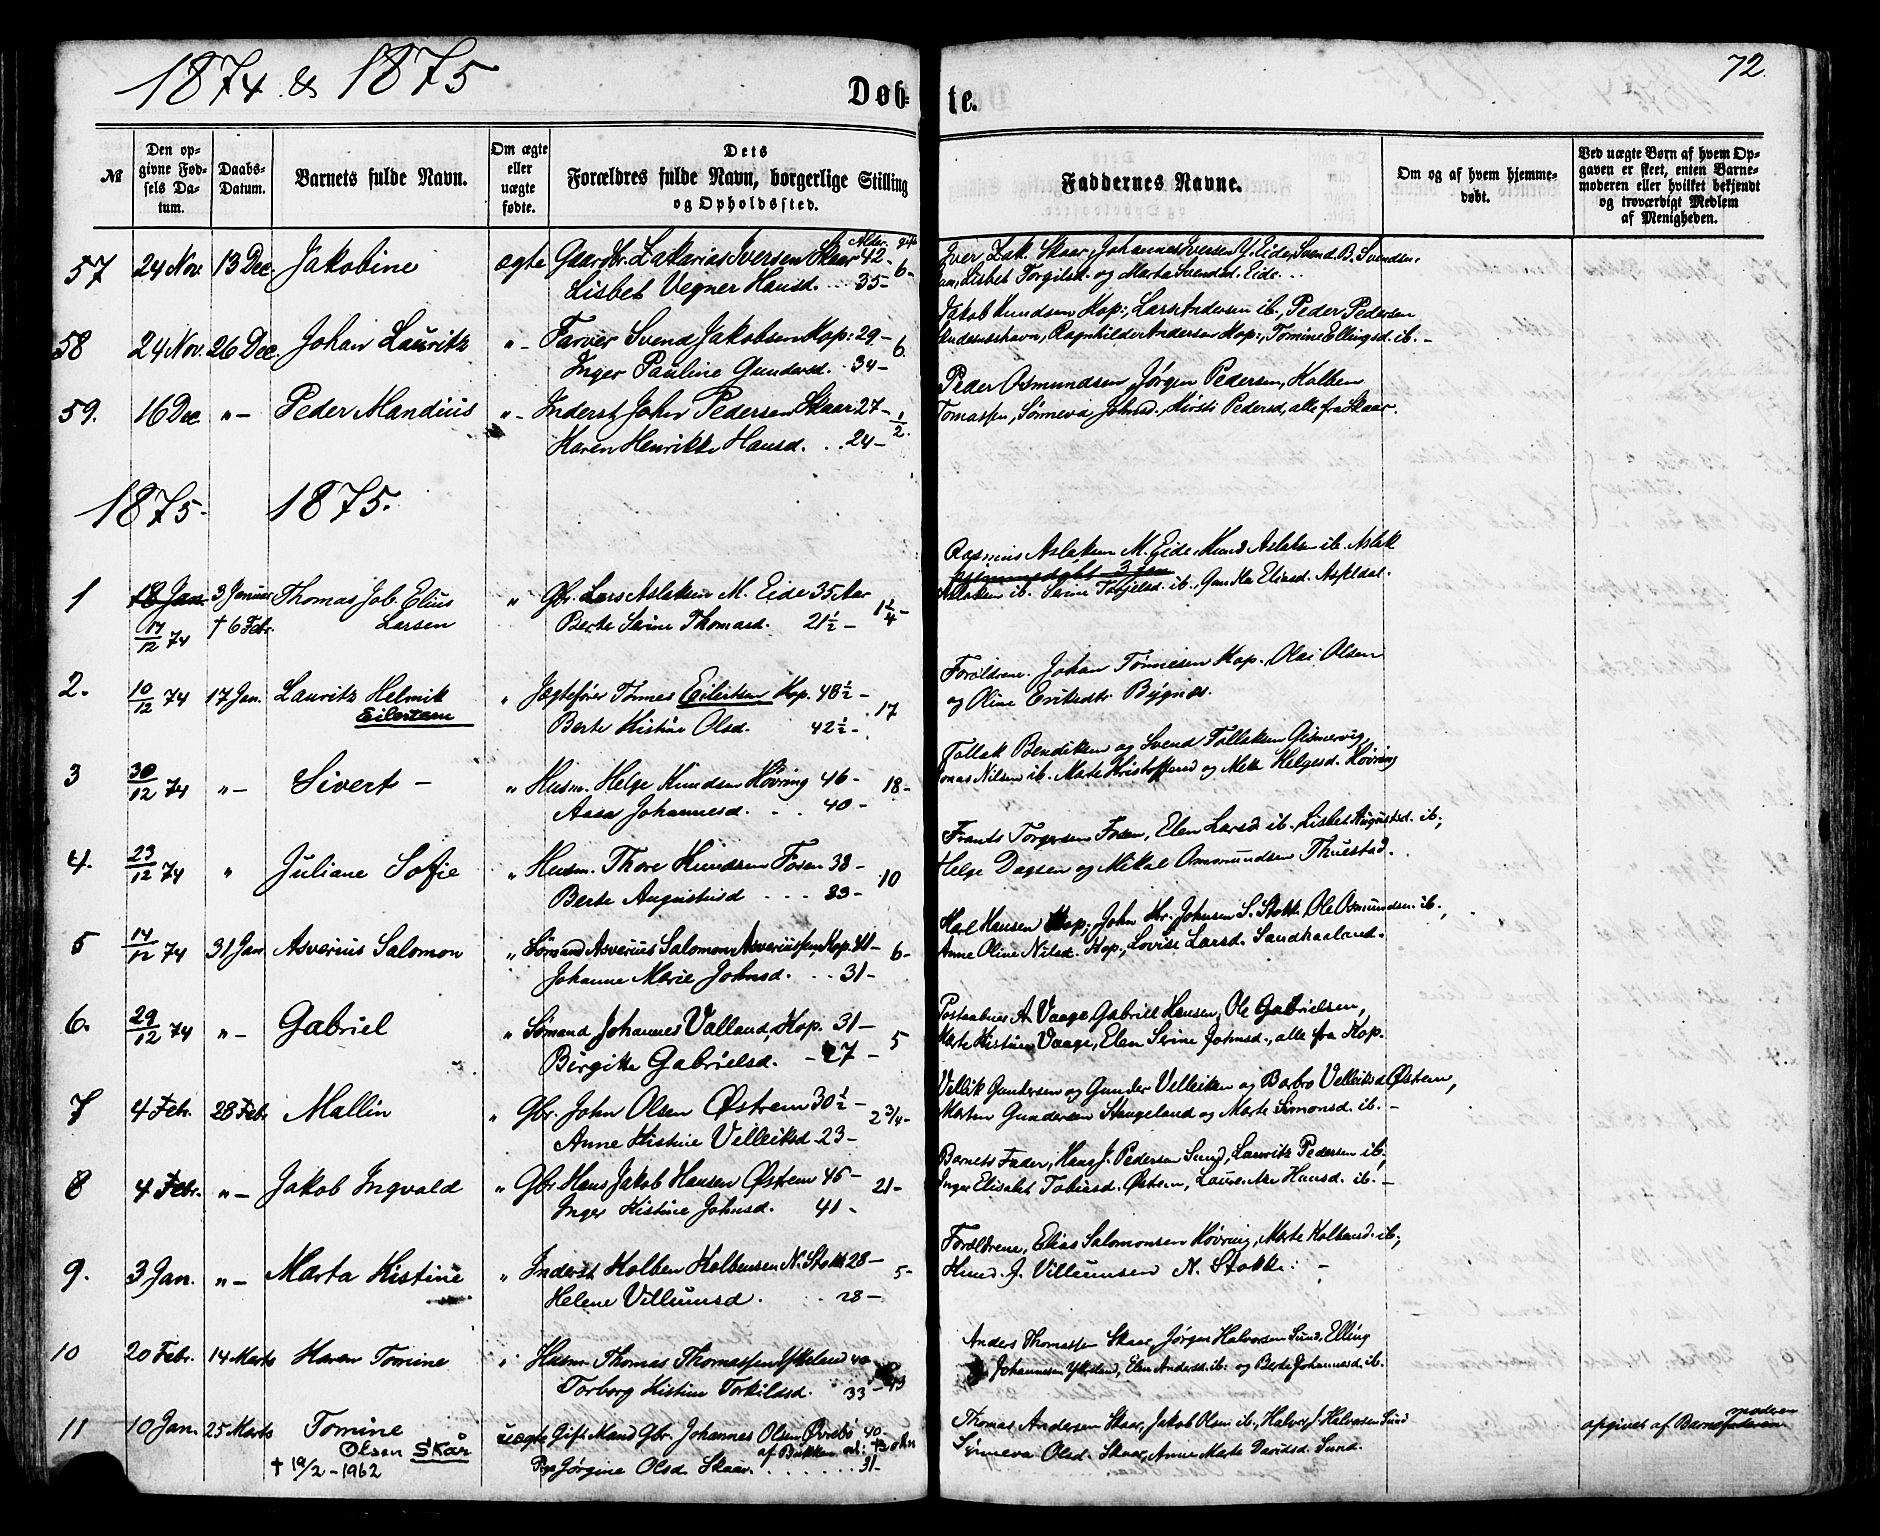 1874 & 1875
72.
Døb-
te.
№
Den op-
givne Fød-
sels Da-
tum.
Daabs-
Datum.
Barnets fulde Navn.
Om ægte
eller
uægte
fødte.
Dets
Forældres fulde Navn, borgerlige Stilling
og Opholdssted.
Faddernes Navne.
Om og af hvem hjemme-
døbt.
Ved uægte Børn af hvem Op-
gaven er skeet, enten Barne-
moderen eller hvilket bekjendt
og troværdigt Medlem
af Menigheden.
Alder. gift
57 24 Nov. 13 Dec. Jakobine ægte Gaardbr. Zakarias Iversen Skaar 42- 6-
Lisbet Vegner Hansd. 35-
Iver Zak. Skaar, Johannes Iversen Y. Eide, Svend B. Svendsen,
Lisbet Torgilsd. og Marta Svendsd. Eide.
58 24 Nov. 26 Dec. Johan Lauritz „- Farver Svend Jakobsen Kop: 29- 6.
Inger Pauline Gundersd. 34-
Jakob Knudsen Kop:, Lars Andersen ib., Peder Pedersen
Ragnhilde Andersen Kop:, Tomine Ellingsd. ib.-
59. 16 Dec „- Peder Mandius „- Inderst John Pedersen Skaar 27- 1/2.
Karen Henrikke Hansd. 24-
Peder Osmundsen, Jørgen Pedersen, Kolben
Tomassen, Sønneva Johnsd. Kirsti Pedersd, alle fra Skaar.
1875. 1875.
1 18 Jan. 3 Januar Thomas Job. Elius „ Gbr. Lars Aslaksen M. Eide 35 Aar 1 1/4-
17/12 74 † 6 Febr. Larsen Berte Serine Thomasd. 21½-
Rasmus Aslaksen M. Eide, Knud Aslaksen ib. Aslak
hjemmedøbt 3 Jan
Aslaksen ib. Serine Torkjelsd. ib. Gunilla Eliasd. Asfeldal.
2. 10/12 74 17 Jan. Lauritz Helmik „ Jægtefører Tønnes Eilertsen Kop. 48½- 17
Eilertsen Berte Kistine Olsd. 42½-
Forældrene. Johan Tønnesen Kop. Olai Olsen
og Oline Eriksdtr. Bygnes.
3 30/12 74 „- Sivert - „ Husm. Helge Knudsen Høvring 46- 18-
Aasa Johannesd. . . 40-
Tollak Bendiksen og Svend Tollaksen Gismervig,
Jonas Nilsen ib. Marte Kristoffersd og Mette Helgesd. Høvring
4. 23/12 74 „ Juliane Sofie „ Husm. Thore Knudsen Fosen 38- 10
Berte Augustinsd . . . 33-
Frants Torgersen Fosen, Elen Larsd ib. Lisbet Augustsd. ib;
Helge Dagsen og Mikal Ommundsen Thuestad.
5 14/12 74 31 Jan Asverius Salomon „ Sømand Asverius Salomon Asveriussen, Kop. 41- 6-
Johanne Marie Johnsd. . . 31-
Karl Hansen Kop; John Kr. Johnsen S. Stokk. Ole Osmundsen ib.,
Anne Oline Nilsd. Kop, Lovise Larsd. Sandhaaland.
6. 29/12 74 „- Gabriel „ Sømand Johannes Valland, Kop. 31- 5
Birgitte Gabrielsd. - 27-
Postaabner A. Vaage, Gabriel Hansen, Ole Gabrielsen,
Marte Kistine Vaage, Elen Serine Johnsd., alle fra Kop.
7 4 Febr. 28 Febr Mallin „ Gbr. John Olsen Østrem 30½- 2 3/4-
Anne Kistine Velleiksd 23-
Vellik Gundersen og Gunder Velleiksen og Barbro Velleiksd Østrem,
Morten Gundersen Stangeland og Marte Simonsd. ib.-
8 4 Febr. „- Jakob Ingvald „ Gbr Hans Jakob Hansen Østrem 45- 21-
Inger Kistine Johnsd. 41-
Barnets Fader, Hans J. Pedersen Sund, Lauritz Pedersen ib,
Inger Elisabet Tobiasd. Østrem, Laurentse Hansd. ib.-
9. 3 Jan. „- Marta Kistine „ Inderst Kolben Kolbensen N. Stokk 28- 5-
Helene Villumsd. . . 28-
Forældrene, Elias Salomonsen Høvring, Marte Kolbensd. ib;
Knud J. Villumsen N. Stokke.
10 20 Febr. 14 Marts Karen Tomine „ Husm. Thomas Thomassen Ytreland 40 13
Torborg Kistine Torkildsd. 33-
Anders Thomassen Skaar, Jørgen Halvorsen Sund, Elling
Johannesen Ytreland, Elen Andersd. ib: og Berte Johannesd. ib.
11 10 Jan. 25 Marts Tomine uægte Gift Mand Gbr. Johannes Olsen Øvrebø 40-
Olsen Skår af Bakken
† 19/2-1962 Pige Jørgine Olsd. Skaar. . . . . 31-
Thomas Andersen Skaar, Jakob Olsen ib., Halvor J. Halvorsen Sund
Sønneva Olsd. Skaar, Anne Marte Davidsd. Sund.
opgivet af Barnefaderen
moderen